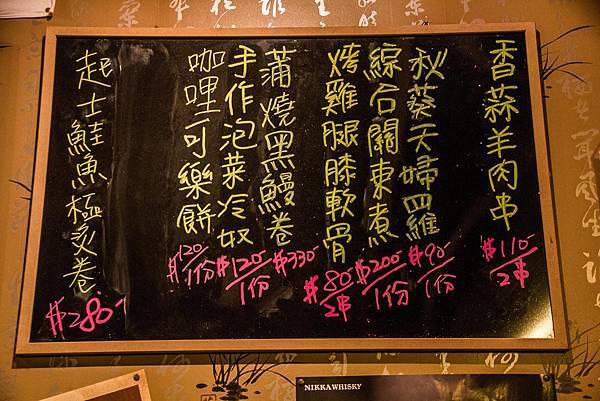 香蒜羊肉串
$110/2串
秋葵天婦羅
$90/1份
綜合關東煮
$200/1份
烤雞腿膝軟骨
$80/2串
蒲燒黑鰻卷
$330
手作泡菜冷奴
$120/1份
咖哩可樂餅
$120/1份
起士鮭魚極炙卷
$280
NIKKAWHISKY